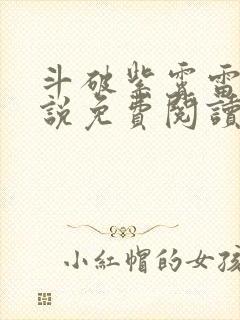 斗破紫雲雷
說免費閱讀
小紅帽的女孩